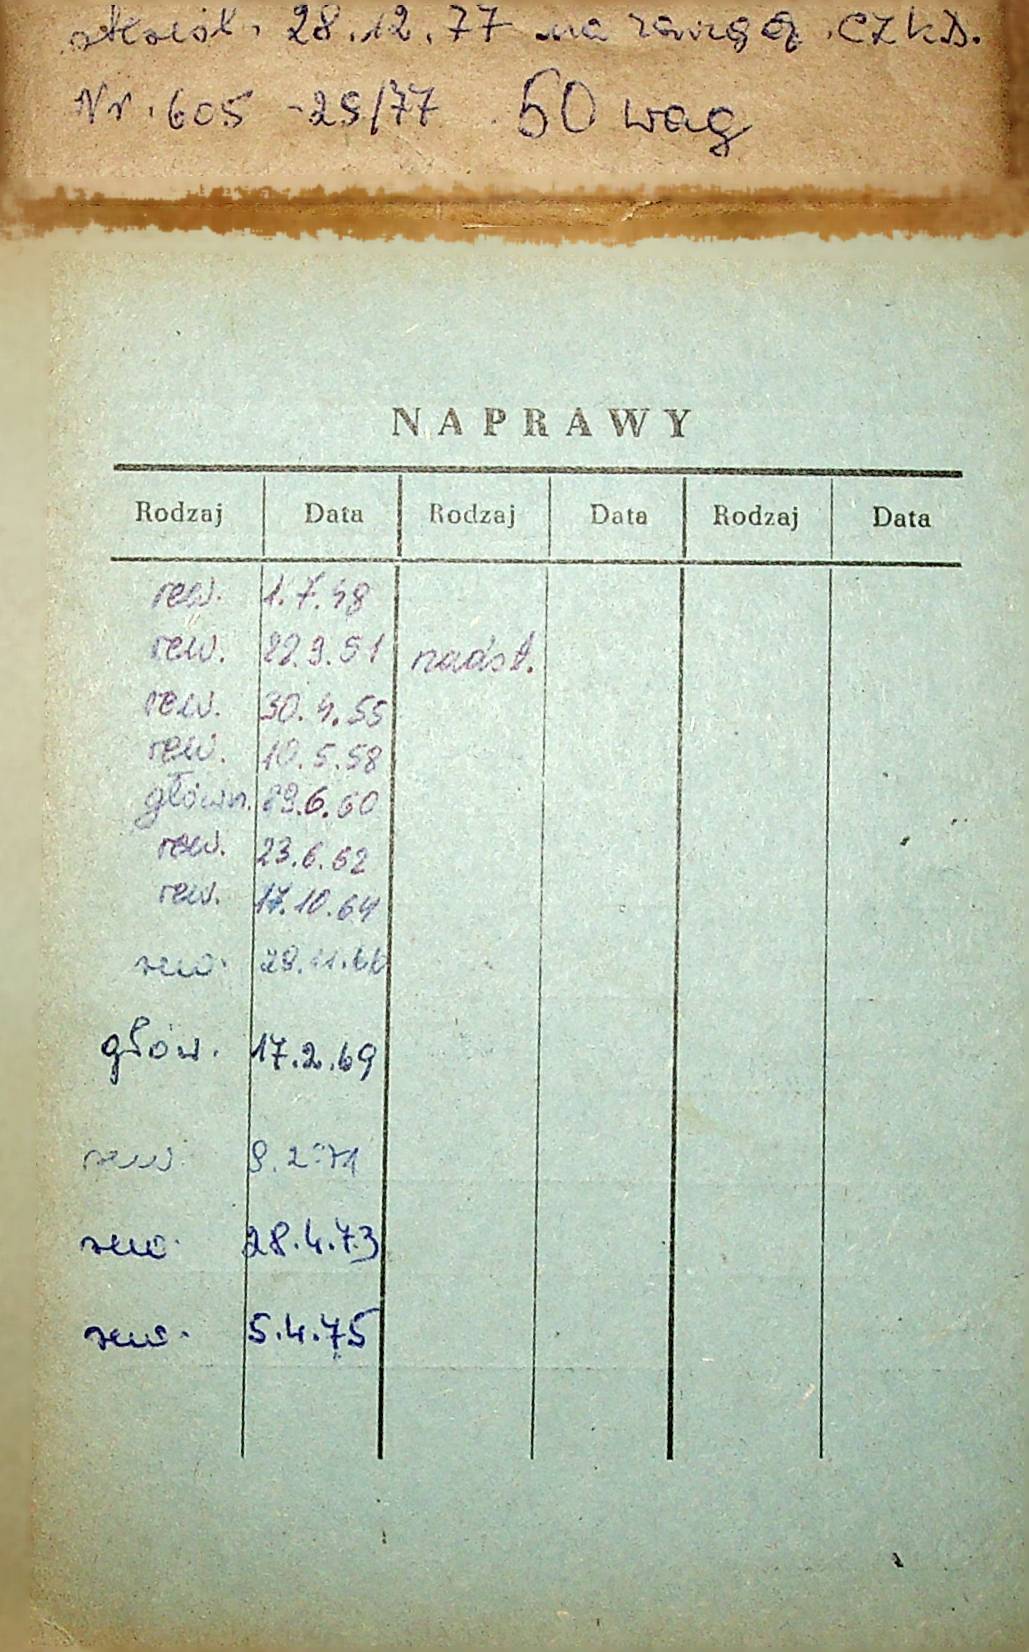 28.12.77 na CZKD.
Nr. 605 -25/77 50 wag
NAPRAWY
Rodzaj Data Rodzaj Data Rodzaj Data
rew. 1.7.48
rew. 22.9.51 naást.
rew. 30.4.55
rew. 10.5.58
główn. 29.6.60
rew. 23.6.62
rew. 17.10.64
rew. 28.11.66
głów. 17.2.69
rew. 9.2.71
rew. 28.4.73
rew. 5.4.75